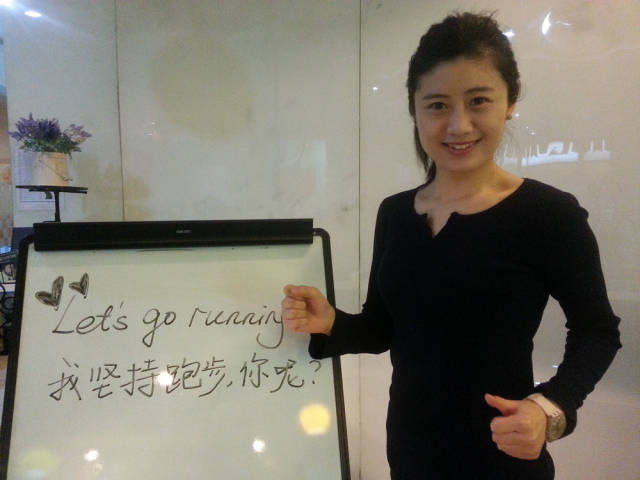 Let's go running
我坚持跑步,你呢?